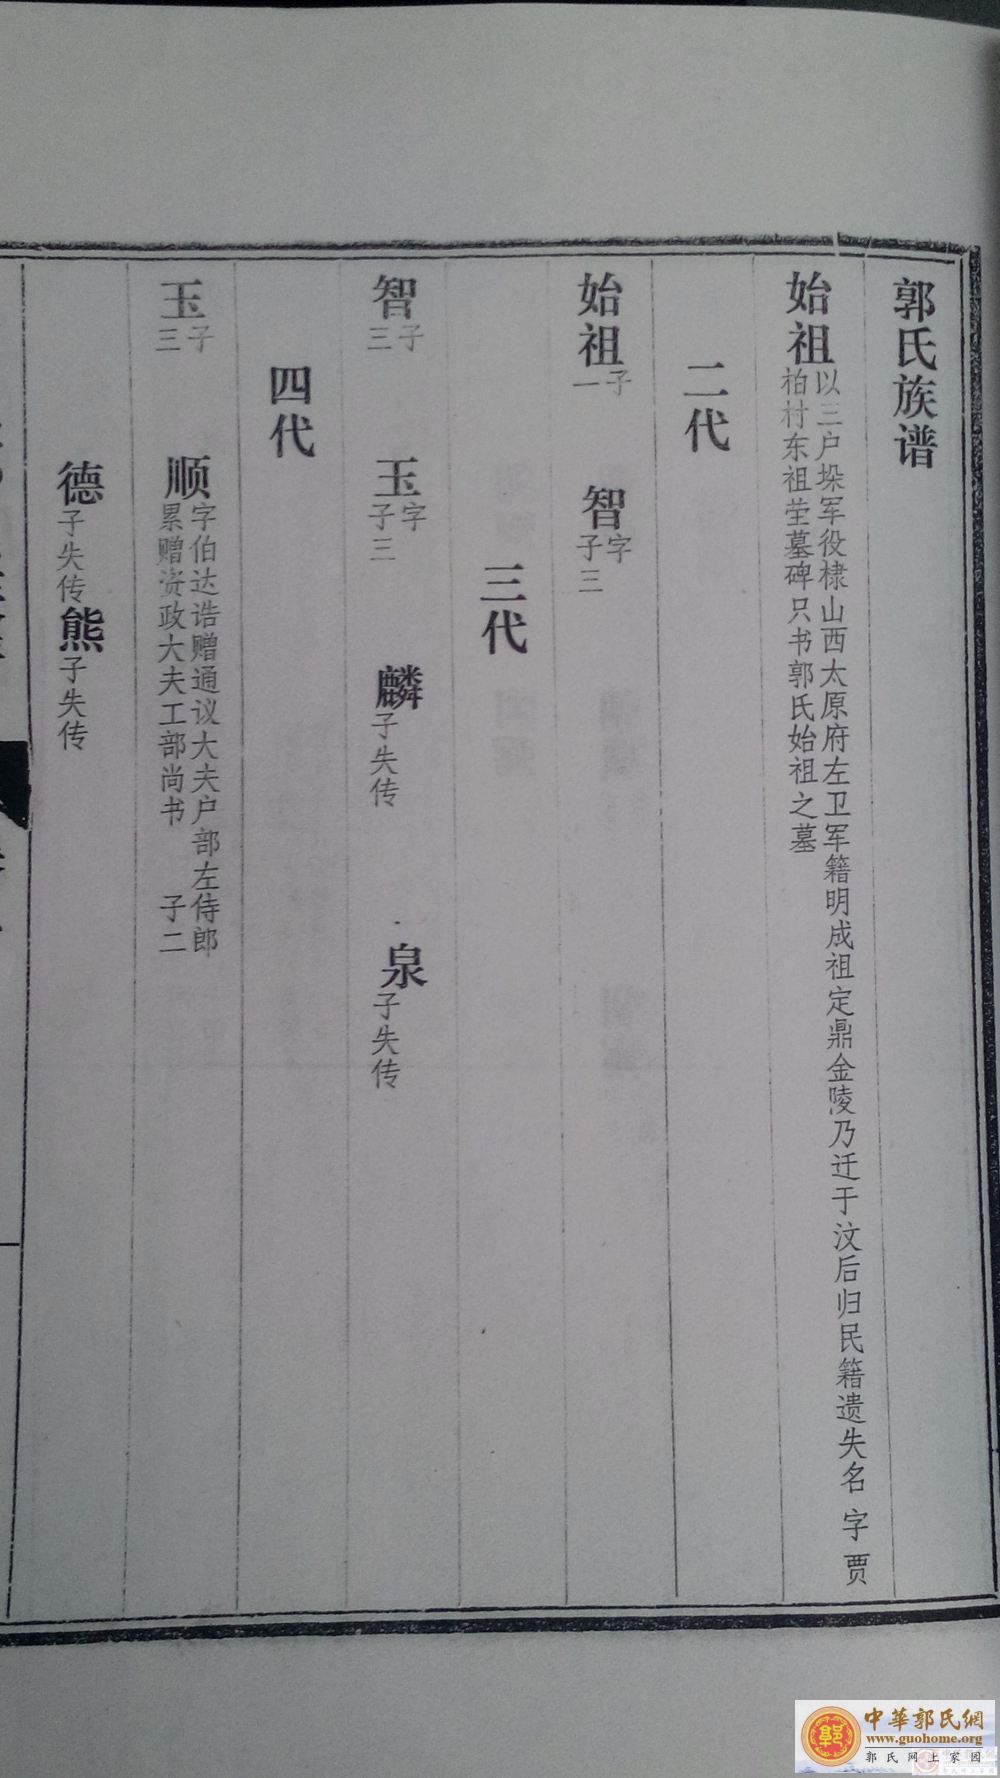 郭氏族谱
始祖
以三户垛军役棣山西太原府左卫军籍明成祖定鼎金陵乃迁于汶后归民籍遗失名字贾
柏村东祖茔墓碑只书郭氏始祖之墓
二代
始祖
子
一
智
字
子三
三代
智
子
三
玉
字
子三
麟
子失传
泉
子失传
四代
玉
子
三
顺
字伯达诰赠通议大夫户部左侍郎
累赠资政大夫工部尚书 子二
德
子失传
熊
子失传
中華郭氏網
www.guohome.org
郭氏网上家园